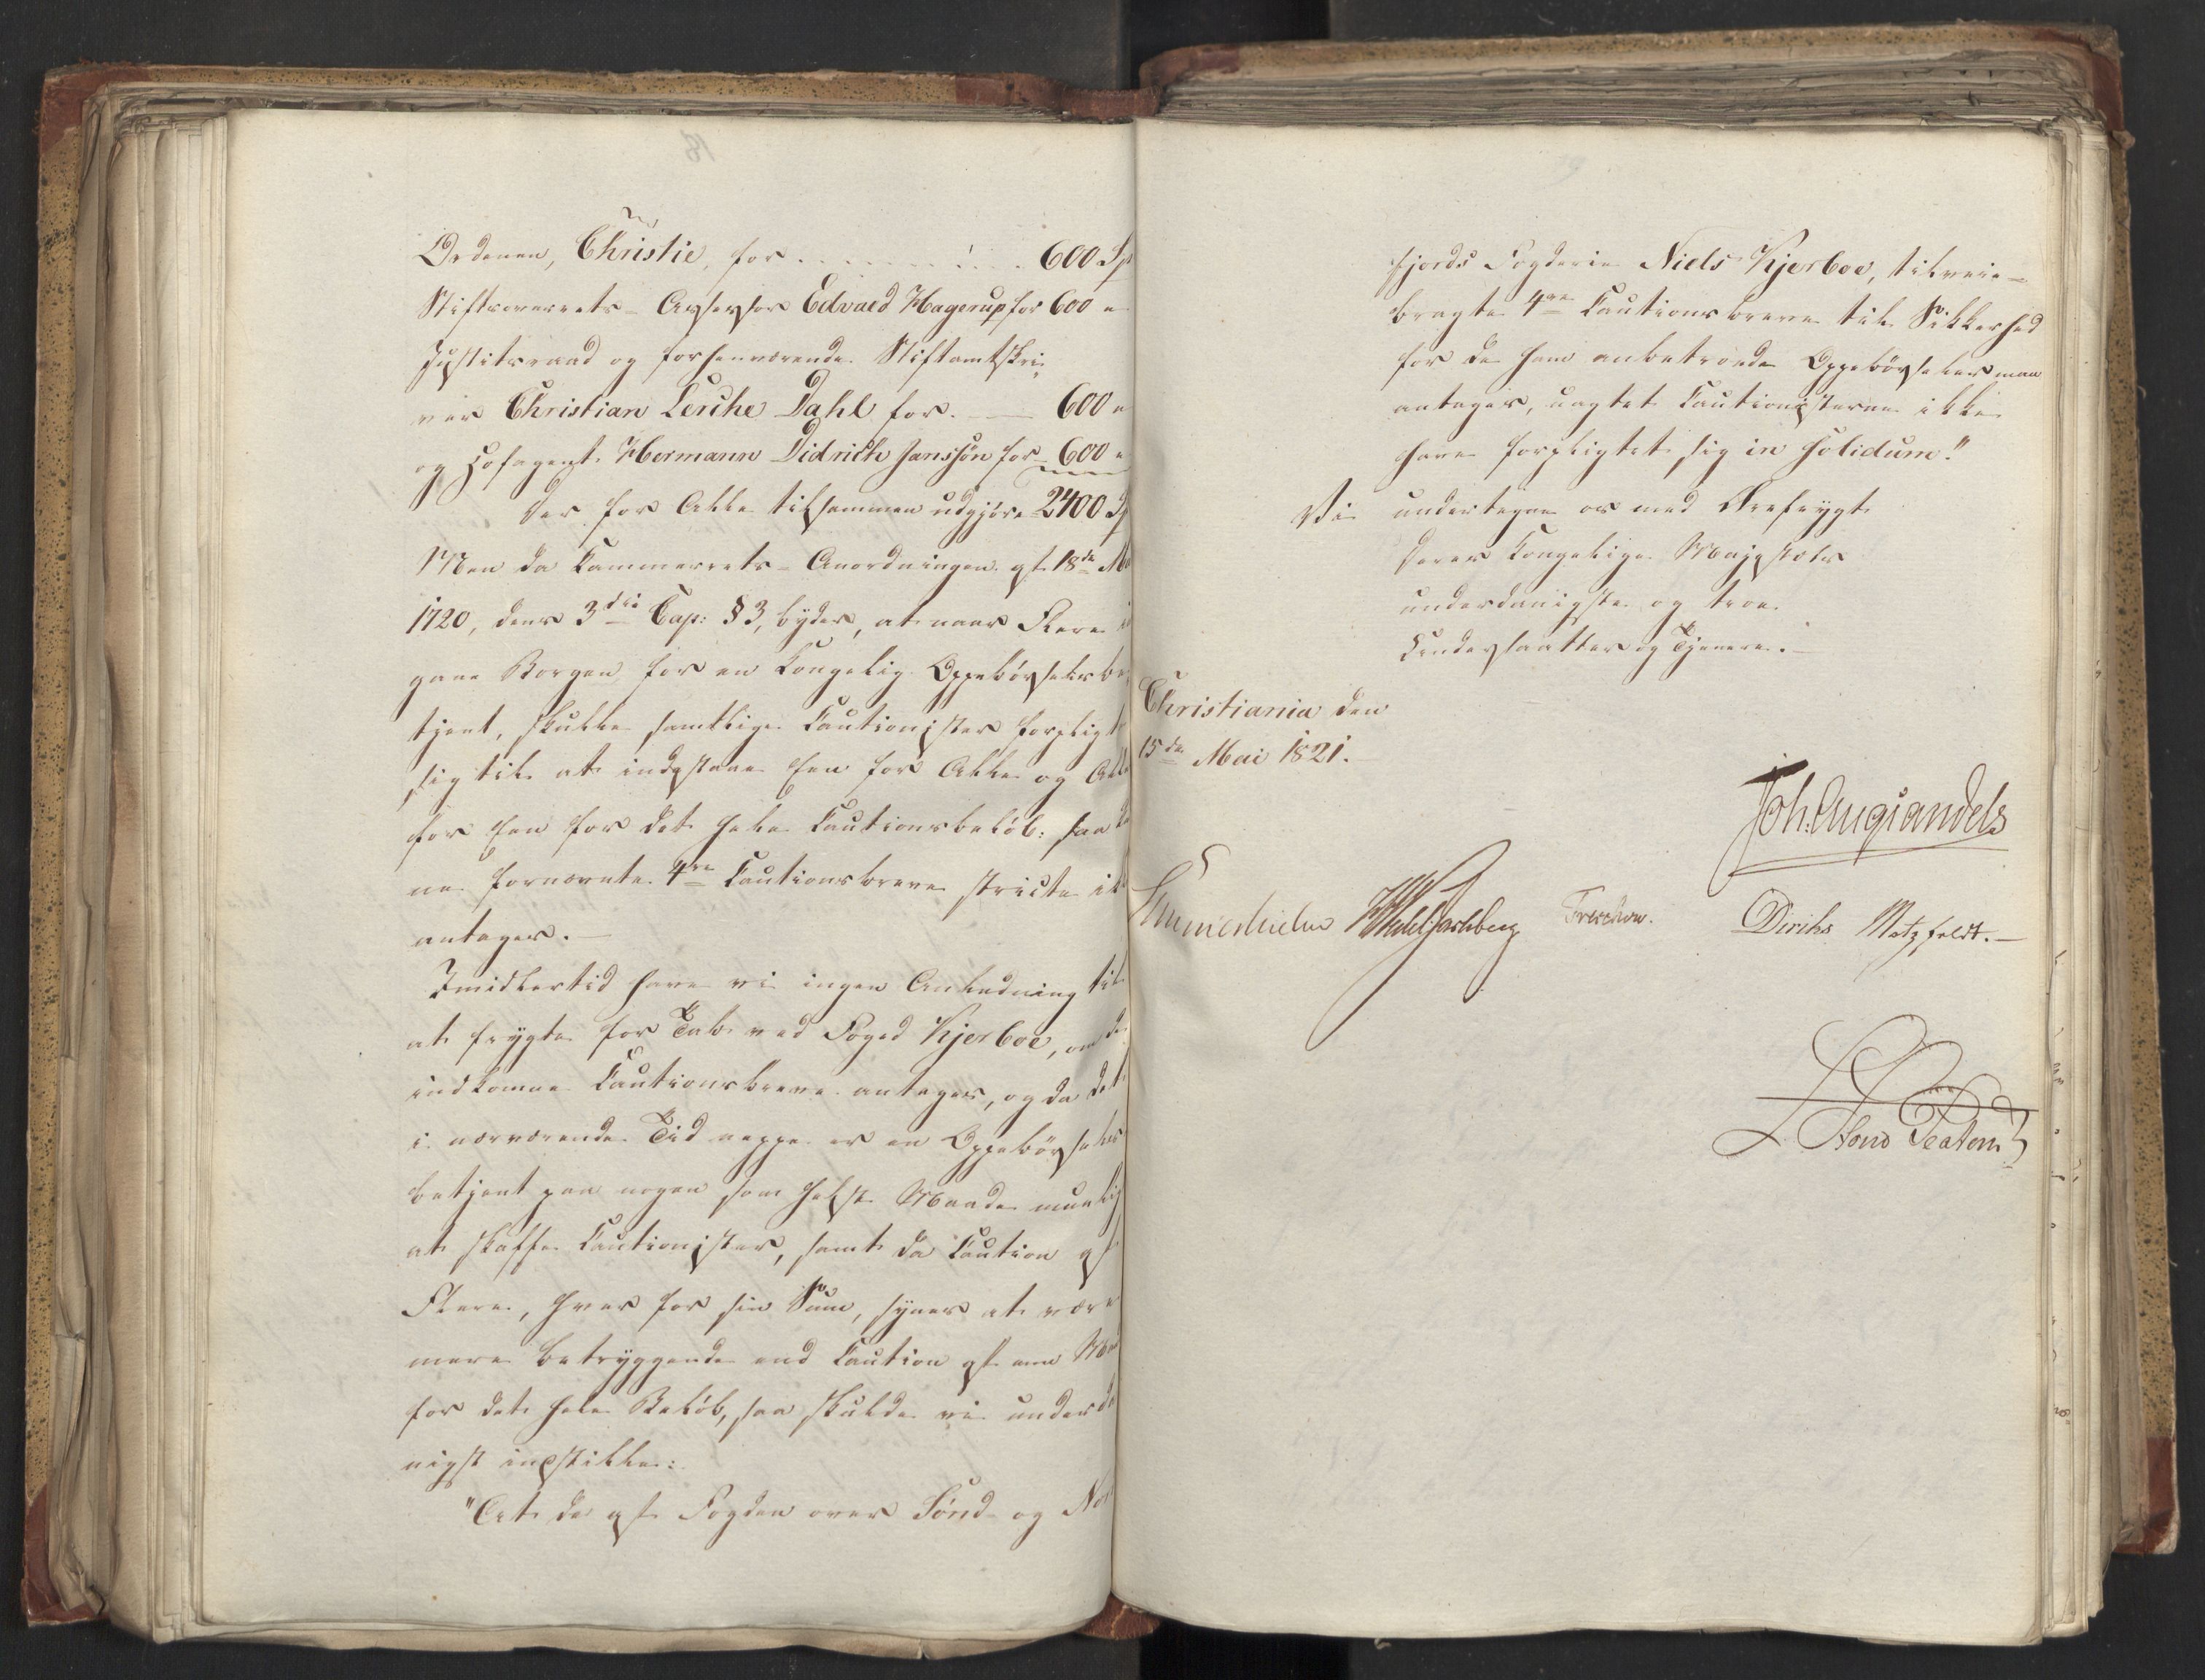 Ordenen, Christie, for . . . . . . . . . 600 Sp
Stiftsoverrets-Assessor Edvard Hagerup for 600 "
Justitsraad og forhenværende Stiftamtskri-
ver Christian Lerche Dahl for . — 600 "
og Hofagent Hermann Didrich Janssøn for 600 "
der for Alle tilsammen udgjøre 2400 Sp
Men da Kammerrets-Anordningen af 18de
1720, dens 3die Cap: § 3, byder, at naar Flere
gaae Borgen for en Kongelig Oppebørselsbe-
tjent, skulle samtlige Cautionister forpligte
sig til at indestaae Een for Alle og Alle
for Een for det hele Cautionsbeløb: saa
ne fornævnte 4re Cautionsbreve stricte
antages. —
Imidlertid have vi ingen Anledning til
at frygte for Tab ved Foged Kjerboe, om de
indkomne Cautionsbreve antages, og da det
i nærværende Tid neppe er en Oppebørsels
betjent paa nogen som helst Maade muelig
at skaffe Cautionister, samt da Caution af
Flere, hver for sin Sum, synes at være
mere betryggende end Caution af een Mand
for det hele Beløb, saa skulde vi underda
nigst indstille:
"At de af Fogden over Sønd- og
fjords Fogderie Niels Kjerboe, tilveie-
bragte 4re Cautionsbreve til Sikkerhed
for de ham anbetroede Oppebørseler maa
antages, uagtet Cautionisterne ikke
have forpligtet sig in solidum."
Vi undertegne os med Ærefrygt
Deres Kongelige Majestæts
underdanigste og troe
Undersaatter og Tjenere. —
Christiania den
15de Mai 1821.
Joh. Aug Sandels
Sommerhielm HWedelJarlsberg Treschow. Diriks Motzfeldt. —